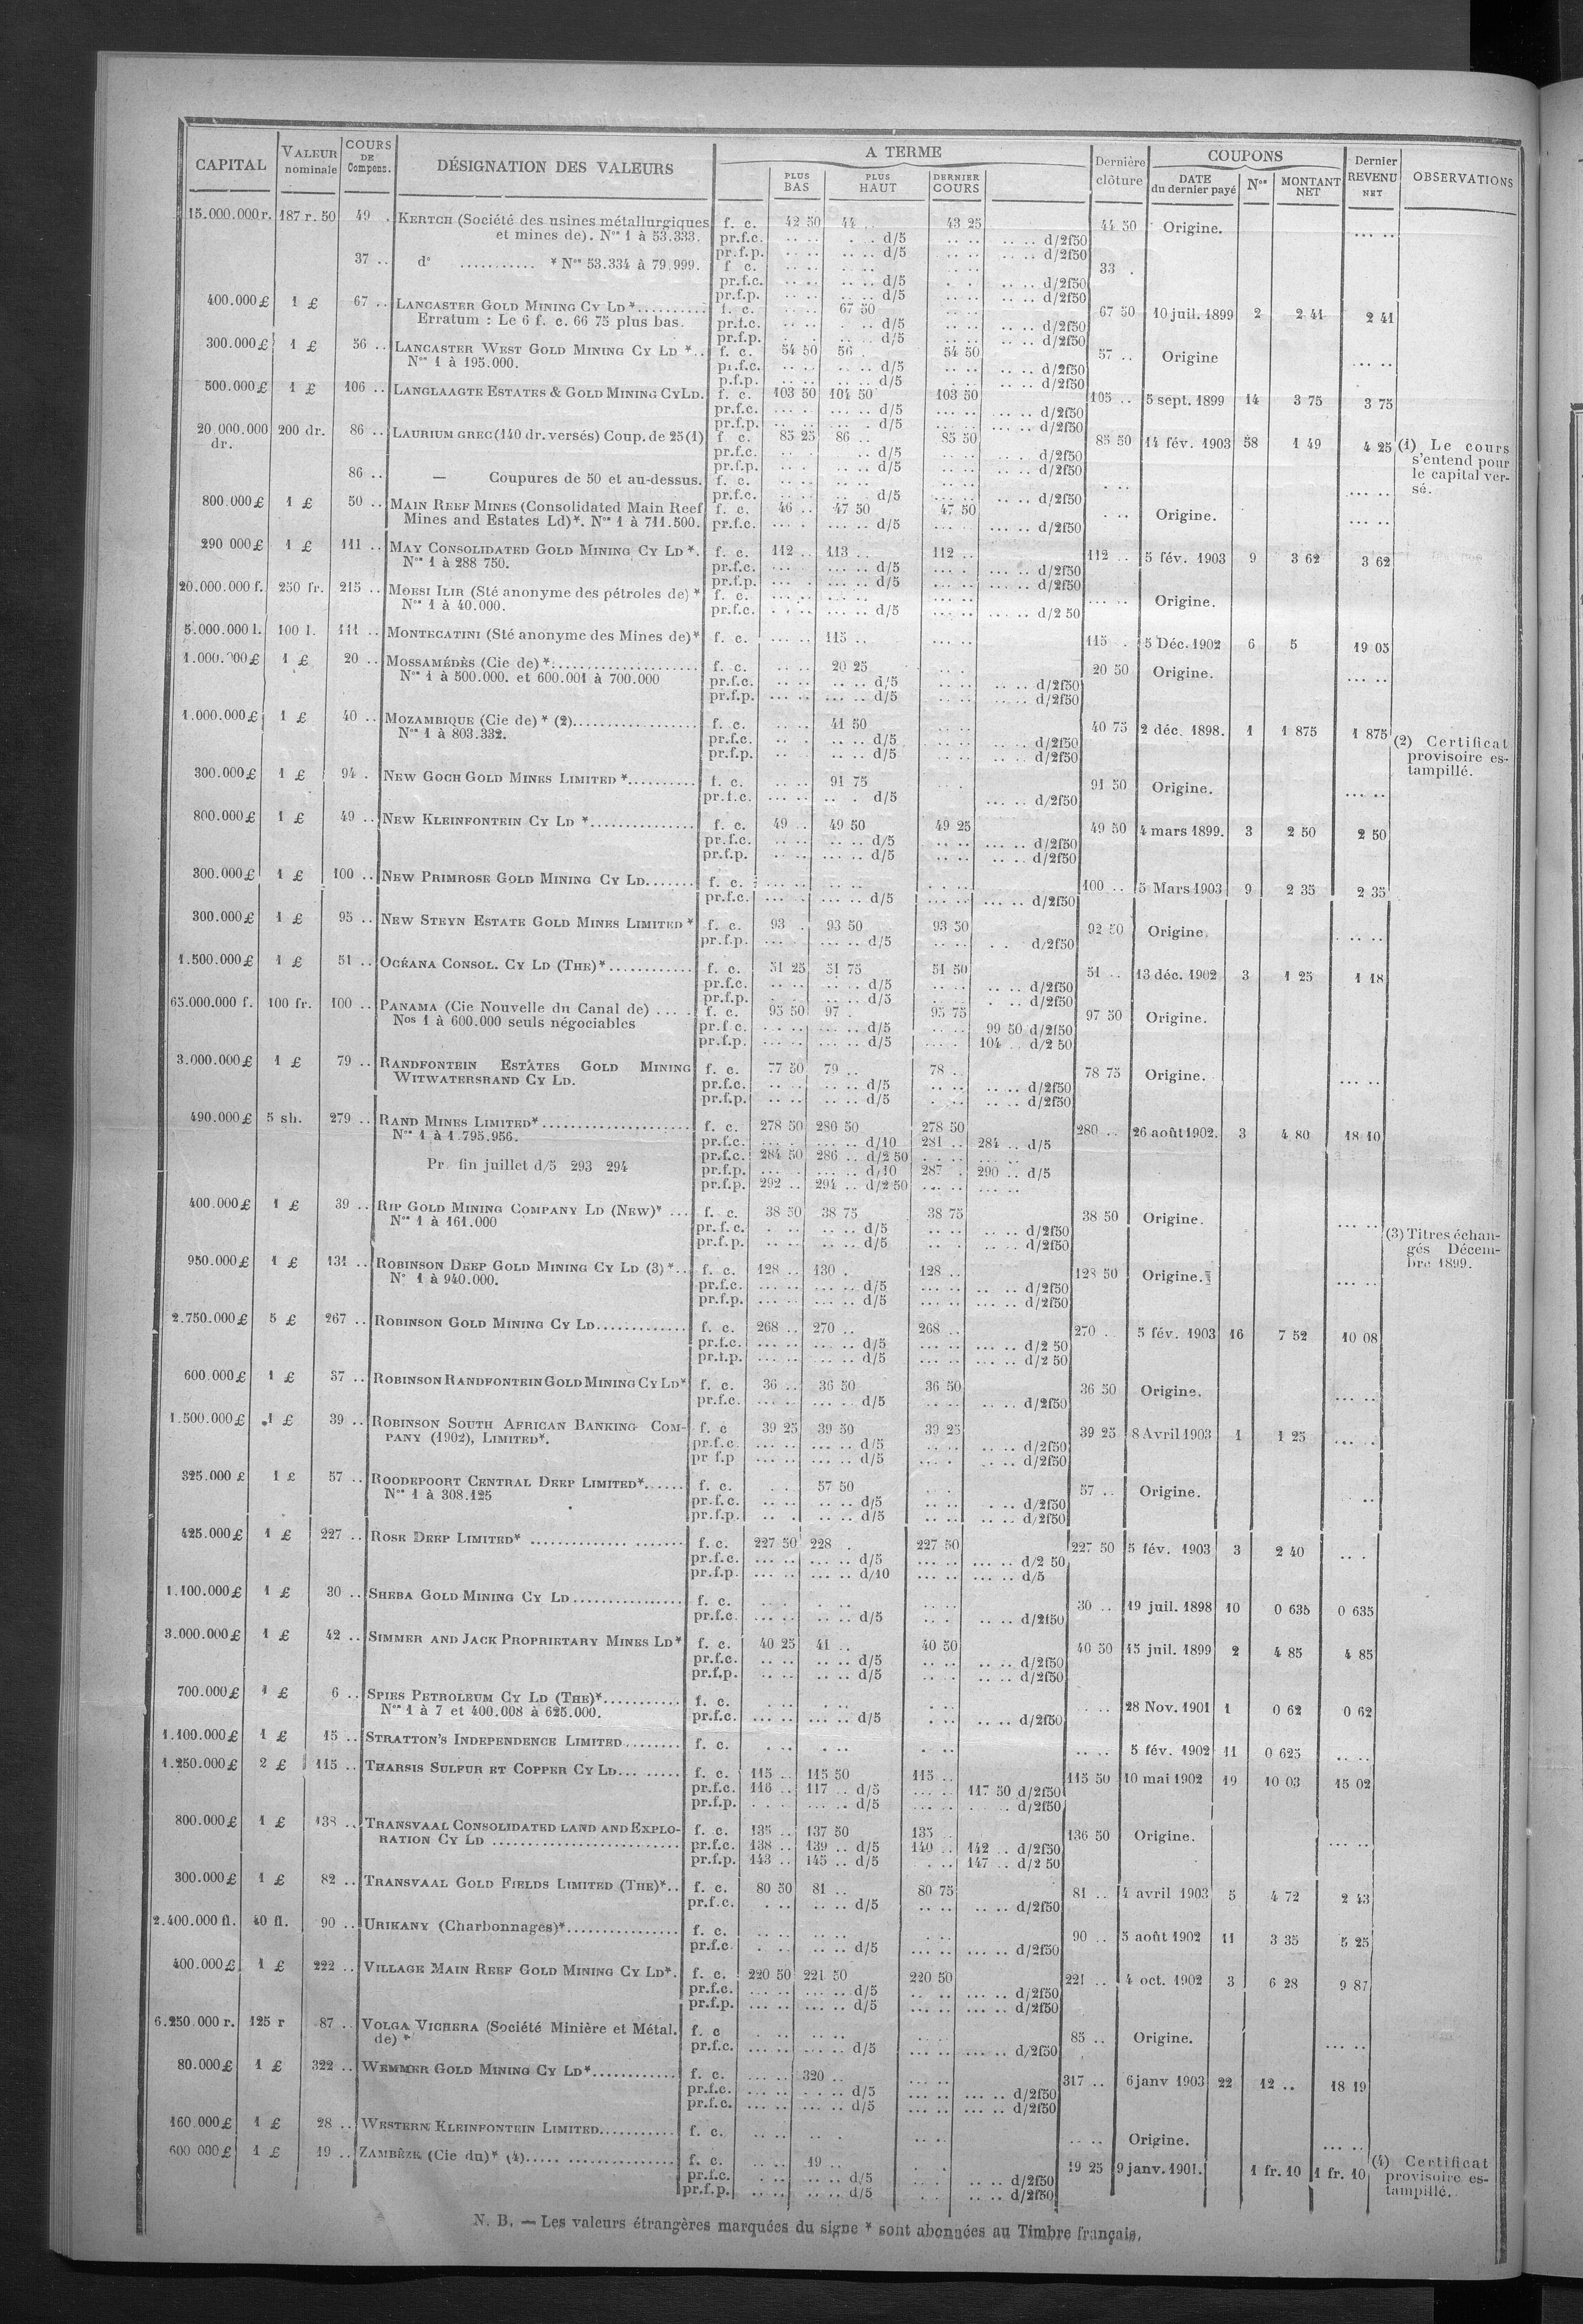 CAPITAL | VALEUR nominale | COURS DE Compens. | DÉSIGNATION DES VALEURS | A TERME | PLUS BAS | PLUS HAUT | DERNIER COURS | Dernière clôture | COUPONS | DATE du dernier payé | Nos | MONTANT NET | Dernier REVENU NET | OBSERVATIONS
15.000.000 r. 187 r. 50 49 . KERTCH (Société des usines métallurgiques f. c. 42 50 44 .. 43 25 44 50 Origine. ... ..
et mines de). Nos 1 à 53.333. pr.f.c. .. .. . . d/5 .. .. .. .. d/2f50
pr.f.p. .. .. .. .. d/5 .. .. .. .. d/2f50
37 .. do ........... * Nos 53.334 à 79.999. f c. .. .. .. .. .. .. 33 .
pr.f.c. .. .. .. .. d/5 . . .. .. d/2f50
pr.f.p. .. .. .. .. d/5 .. .. .. .. d/2f50
400.000 £ 1 £ 67 .. LANCASTER GOLD MINING CY LD *.......... f. c. .. .. 67 50 .. .. 67 50 10 juil. 1899 2 2 41 2 41
Erratum : Le 6 f. c. 66 75 plus bas. pr.f.c. .. .. . .. d/5 .. .. .. .. d/2f50
pr.f.p. . . .. .. d/5 .. .. .. .. d/2f50
300.000 £ 1 £ 56 .. LANCASTER WEST GOLD MINING CY LD *.. f. c. 54 50 56 54 50 57 .. Origine ... ..
Nos 1 à 195.000. pr.f.c. .. .. .. .. d/5 .. .. .. .. d/2f50
p.f.p. .. .. .. .. d/5 . .. .. .. d/2f50
500.000 £ 1 £ 106 .. LANGLAAGTE ESTATES & GOLD MINING CYLD. f. c. 103 50 104 50 103 50 105 .. 5 sept. 1899 14 3 75 3 75
pr.f.c. ... . ... .. d/5 ... .. ... .. d/2f50
pr.f.p. ... .. ... . d/5 ... .. ... .. d/2f50
20.000.000 dr. 200 dr. 86 .. LAURIUM GREC (140 dr. versés) Coup. de 25 (1) f c. 85 25 86 .. 85 50 85 50 14 fév. 1903 58 1 49 4 25 (1) Le cours s'entend pour le capital versé.
pr.f.c. .. d/5 .. .. . . d/2f50
pr.f.p. .. . .. .. d/5 .. .. .. .. d/2f50
86 .. — Coupures de 50 et au-dessus. f. c. .. .. .. .. .. .. . ..
pr.f.c. .. .. d/5 ... .. .. .. d/2f50 ... ..
800.000 £ 1 £ 50 .. MAIN REEF MINES (Consolidated Main Reef f. c. 46 .. 47 50 47 50 . .. Origine. ... ..
Mines and Estates Ld)*. Nos 1 à 711.500. pr.f.c. ... . ... .. d/5 ... . ... .. d/2f50
290 000 £ 1 £ 111 .. MAY CONSOLIDATED GOLD MINING CY LD *. f. c. 112 .. 113 .. 112 .. 112 .. 5 fév. 1903 9 3 62 3 62
Nos 1 à 288 750. pr.f.c. ... .. ... .. d/5 ... .. ... .. d/2f50
pr.f.p. ... . ... .. d/5 ... . ... .. d/2f50
20.000.000 f. 250 fr. 215 .. MOESI ILIR (Sté anonyme des pétroles de) * f. c. ... .. ... .. ... .. ... .. Origine.
Nos 1 à 40.000. pr.f.c. . . .. ... .. d/5 ... .. ... .. d/2 50
5.000.000 l. 100 l. 111 .. MONTECATINI (Sté anonyme des Mines de)* f. c. ... .. 115 .. ... .. 115 . 5 Déc. 1902 6 5 19 05
1.000.000 £ 1 £ 20 .. MOSSAMÉDÈS (Cie de) *.................... f. c. .. .. 20 25 . .. 20 50 Origine. ... ..
Nos 1 à 500.000. et 600.001 à 700.000 pr.f.c. .. .. .. .. d/5 .. .. .. .. d/2f50
pr.f.p. ... .. ... .. d/5 .. .. .. .. d/2f50
1.000.000 £ 1 £ 40 .. MOZAMBIQUE (Cie de) * (2).................. f. c. .. .. 41 50 .. .. 40 75 2 déc. 1898. 1 1 875 1 875 (2) Certificat provisoire estampillé.
Nos 1 à 803.332. pr.f.c. .. . .. .. d/5 .. .. .. .. d/2f50
pr.f.p. .. . .. .. d/5 .. .. .. .. d/2f50
300.000 £ 1 £ 94 . NEW GOCH GOLD MINES LIMITED *.......... f. c. .. .. 91 75 . . 91 50 Origine. ... ..
pr.f.c. ... .. .. . d/5 ... .. d/2f50
800.000 £ 1 £ 49 .. NEW KLEINFONTEIN CY LD *............... f. c. 49 .. 49 50 49 25 49 50 4 mars 1899. 3 2 50 2 50
pr.f.c. .. .. .. .. d/5 .. .. ... .. d/2f50
pr.f.p. .. .. ... .. d/5 .. .. ... .. d/2f50
300.000 £ 1 £ 100 .. NEW PRIMROSE GOLD MINING CY LD....... f. c. ... .. .. .. . . .. 100 .. 5 Mars 1903 9 2 35 2 35
pr.f.c. ... . ... .. d/5 ... .. ... .. d/2f50
300.000 £ 1 £ 95 .. NEW STEYN ESTATE GOLD MINES LIMITED * f. c. 93 . 93 50 93 50 92 50 Origine. .. ..
pr.f.p. ... . ... .. d/5 .. .. . . d/2f50
1.500.000 £ 1 £ 51 .. OCÉANA CONSOL. CY LD (THE)*............ f. c. 51 25 51 75 51 50 51 .. 13 déc. 1902 3 1 25 1 18
pr.f.c. .. .. .. .. d/5 .. .. .. .. d/2f50
pr.f.p. . . .. .. d/5 .. .. . .. d/2f50
65.000.000 f. 100 fr. 100 .. PANAMA (Cie Nouvelle du Canal de) .... . f. c. 95 50 97 . 95 75 97 50 Origine.
Nos 1 à 600.000 seuls négociables pr.f c. . . .. ... .. d/5 .. .. 99 50 d/2f50
pr.f.p. ... .. ... .. d/5 ... . 104 .. d/2 50
3.000.000 £ 1 £ 79 .. RANDFONTEIN ESTATES GOLD MINING f. c. 77 50 79 .. 78 .. 78 75 Origine. ... ..
WITWATERSRAND CY LD. pr.f.c. .. .. .. .. d/5 .. .. .. .. d/2f50
pr.f.p. .. .. .. .. d/5 . .. .. .. d/2f50
490.000 £ 5 sh. 279 .. RAND MINES LIMITED*..................... f. c. 278 50 280 50 278 50 280 .. 26 août 1902. 3 4 80 18 10
Nos 1 à 1.795.956. pr.f.c. ... . ... .. d/10 281 .. 284 .. d/5
pr.f.c. 284 50 286 .. d/2 50 . .. .. ... ..
Pr. fin juillet d/5 293 294 pr.f.p. ... . ... .. d/10 287 . 290 .. d/5
pr.f.p. 292 .. 294 .. d/2 50 ... .. ... ..
400.000 £ 1 £ 39 .. RIP GOLD MINING COMPANY LD (NEW)* ... f. c. 38 50 38 75 38 75 38 50 Origine. ... ..
Nos 1 à 161.000 pr.f.c. . .. .. .. d/5 .. .. .. .. d/2f50
pr.f.p. .. .. .. .. d/5 .. . .. .. d/2f50
(3) Titres échangés Décembre 1899.
950.000 £ 1 £ 131 .. ROBINSON DEEP GOLD MINING CY LD (3) *.. f. c. 128 .. 130 . 128 .. 128 50 Origine. ... ..
No 1 à 940.000. pr.f.c. ... .. ... .. d/5 ... .. .. .. d/2f50
pr.f.p. ... .. ... .. d/5 ... .. ... .. d/2f50
2.750.000 £ 5 £ 267 .. ROBINSON GOLD MINING CY LD............. f. c. 268 .. 270 .. 268 .. 270 .. 5 fév. 1903 16 7 52 10 08
pr.f.c. ... .. ... .. d/5 ... .. ... .. d/2 50
pr.f.p. ... .. ... .. d/5 ... .. ... .. d/2 50
600.000 £ 1 £ 37 .. ROBINSON RANDFONTEIN GOLD MINING CY LD* f. c. 36 .. 36 50 36 50 36 50 Origine. ... ..
pr.f.c. ... .. ... .. d/5 .. .. .. .. d/2f50
1.500.000 £ 1 £ 39 .. ROBINSON SOUTH AFRICAN BANKING COM- f. c 39 25 39 50 39 25 39 25 8 Avril 1903 1 1 25 ... ..
PANY (1902), LIMITED*. pr.f.c. ... .. ... .. d/5 .. .. .. .. d/2f50
pr f.p ... .. ... .. d/5 ... . .. .. d/2f50
325.000 £ 1 £ 57 .. ROODEPOORT CENTRAL DEEP LIMITED*...... f. c. . . . 57 50 . . 57 .. Origine. ..
Nos 1 à 308.125 pr.f.c. .. .. .. .. d/5 .. .. . .. d/2f50
pr.f.p. .. . .. .. d/5 .. .. .. .. d/2f50
425.000 £ 1 £ 227 .. ROSE DEEP LIMITED* .............. ....... f. c. 227 50 228 . 227 50 227 50 5 fév. 1903 3 2 40 .. .
pr.f.c. ... .. ... .. d/5 ... .. ... .. d/2 50
pr.f.p. ... .. ... .. d/10 ... .. ... .. d/5
1.100.000 £ 1 £ 30 .. SHEBA GOLD MINING CY LD................ f. c. .. . . .. .. .. 30 .. 19 juil. 1898 10 0 635 0 635
pr.f.c. ... .. ... .. d/5 .. . .. .. d/2f50
3.000.000 £ 1 £ 42 .. SIMMER AND JACK PROPRIETARY MINES LD* f. c. 40 25 41 .. 40 50 40 50 15 juil. 1899 2 4 85 4 85
pr.f.c. .. .. .. .. d/5 .. .. .. .. d/2f50
pr.f.p. .. .. .. .. d/5 .. .. .. .. d/2f50
700.000 £ 1 £ 6 .. SPIES PETROLEUM CY LD (THE)*........... f. c. . .. .. .. . .. . .. 28 Nov. 1901 1 0 62 0 62
Nos 1 à 7 et 400.008 à 625.000. pr.f.c. ... .. ... .. d/5 . .. .. .. d/2f50
1.100.000 £ 1 £ 15 .. STRATTON'S INDEPENDENCE LIMITED........ f. c. . .. . .. . .. .. .. 5 fév. 1902 11 0 625 .. ..
1.250.000 £ 2 £ 115 .. THARSIS SULFUR ET COPPER CY LD... ..... f. c. 115 .. 115 50 115 .. 115 50 10 mai 1902 19 10 03 15 02
pr.f.c. 116 .. 117 .. d/5 ... .. 117 50 d/2f50
pr.f.p. . . . ... .. d/5 ... .. . .. d/2f50
800.000 £ 1 £ 138 .. TRANSVAAL CONSOLIDATED LAND AND EXPLO- f. c. 135 .. 137 50 135 .. 136 50 Origine. ... ..
RATION CY LD .......................... pr.f.c. 138 .. 139 .. d/5 140 .. 142 .. d/2f50
pr.f.p. 143 .. 145 .. d/5 . .. 147 .. d/2 50
300.000 £ 1 £ 82 .. TRANSVAAL GOLD FIELDS LIMITED (THE)*.. f. c. 80 50 81 .. 80 75 81 .. 4 avril 1903 5 4 72 2 43
pr.f.c. . .. .. .. d/5 .. .. .. .. d/2f50
2.400.000 fl. 40 fl. 90 .. URIKANY (Charbonnages)*................ f. c. .. .. .. .. . .. 90 .. 5 août 1902 11 3 35 5 25
pr.f.c . .. .. .. d/5 ... .. ... .. d/2f50
400.000 £ 1 £ 222 .. VILLAGE MAIN REEF GOLD MINING CY LD*. f. c. 220 50 221 50 220 50 221 .. 4 oct. 1902 3 6 28 9 87
pr.f.c. ... .. ... .. d/5 .. .. ... .. d/2f50
pr.f.p. ... .. ... .. d/5 ... .. ... .. d/2f50
6.250.000 r. 125 r 87 .. VOLGA VICHERA (Société Minière et Métal. f. c . .. .. .. .. . 85 .. Origine. ... ..
de) * pr.f.c. ... .. ... .. d/5 ... .. ... .. d/2f50
80.000 £ 1 £ 322 .. WEMMER GOLD MINING CY LD*............ f. c. ... .. 320 .. ... .. 317 .. 6 janv 1903 22 12 .. 18 19
pr.f.c. ... .. . . .. d/5 ... .. ... .. d/2f50
pr.f.c. ... .. ... .. d/5 ... .. ... .. d/2f50
160.000 £ 1 £ 28 .. WESTERN KLEINFONTEIN LIMITED........... f. c. .. .. .. . .. .. .. .. Origine. ... ..
600 000 £ 1 £ 19 .. ZAMBÈZE (Cie du)* (4)..... ................ f. c. .. .. 19 .. . . 19 25 9 janv. 1901. 1 fr. 10 1 fr. 10 (4) Certificat provisoire estampillé.
pr.f.c. . .. .. .. d/5 .. . .. .. d/2f50
pr.f.p. .. .. .. .. d/5 . . .. .. d/2f50
N. B. — Les valeurs étrangères marquées du signe * sont abonnées au Timbre français.